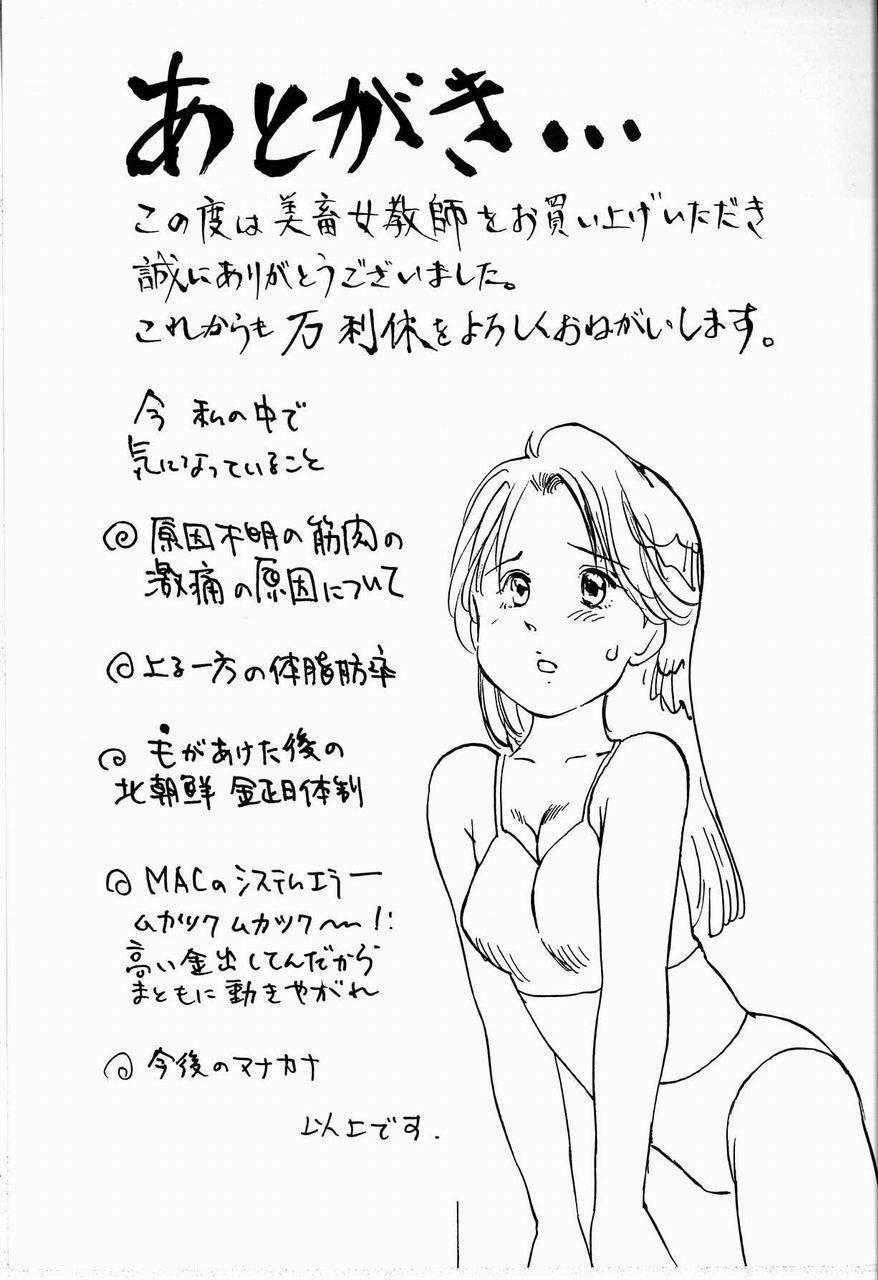 あとがき・・・
この度は美畜女教師をお買い上げいただき
誠にありがとうございました。
これからも万利休をよろしくおねがいします。
今 私の中で
気になっていること
原因不明の筋肉の
激痛の原因について
上る一方の体脂肪率
もがあけた後の
北朝鮮 金正日体制
MACのシステムエラー
ムカツク ムカツク〜〜!!
高い金出してんだから
まともに動きやがれ
今後のマナカナ
以上です.